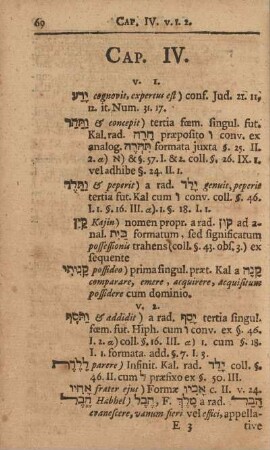 60 CAP. IV. v. 1. 2.
CAP. IV.
v. 1.
יָדַע cognovit, expertus est) conf. Jud. 21. 11,
12. it. Num. 31. 17.
וַתַּהַר & concepit) tertia fœm. singul. fut.
Kal. rad. הָרָה præposito ו conv. ex
analog. תִּהְרֶה formata juxta §. 25. II
2. α) א) & §. 57. I. & 2. coll. §. 26. IX. 1.
vel adhibe §. 24. II. 1.
וַתֵּלֶד & peperit) a rad. יָלַד genuit, peperit
tertia fut. Kal cum ו conv. coll. §. 46.
I. 1. §. 16. III. α). 1. §. 18. I. 1.
קַיִן Kajin) nomen propr. a rad. קִין ad a-
nal. בַּיִת formatum, sed significatum
possessionis trahens (coll. §. 43. obs. 3.) ex
sequente
קָנִיתִי possideo) prima singul. præt. Kal a קָנָה
comparare, emere, acquirere, acquisitum
possidere cum dominio.
v. 2.
וַתֹּסֶף & addidit) a rad. יָסַף tertia singul.
fœm. fut. Hiph. cum ו conv. ex §. 46.
I. 2. α) coll. §. 16. III. α) 1. cum §. 18.
I. 1. formata. add. §. 7. I. 3.
לָלֶדֶת parere) Infinit. Kal. rad. יָלַד coll. §.
46. II. cum ל præfixo ex §. 50. III.
אָחִיו frater ejus) Formæ אָבִיו c. II. v. 24.
הֶבֶל Habhel) הָבֶל, F. מֶלֶךְ a rad. הָבַל
evanescere, vanum fieri vel effici, appella-
E 3 tive